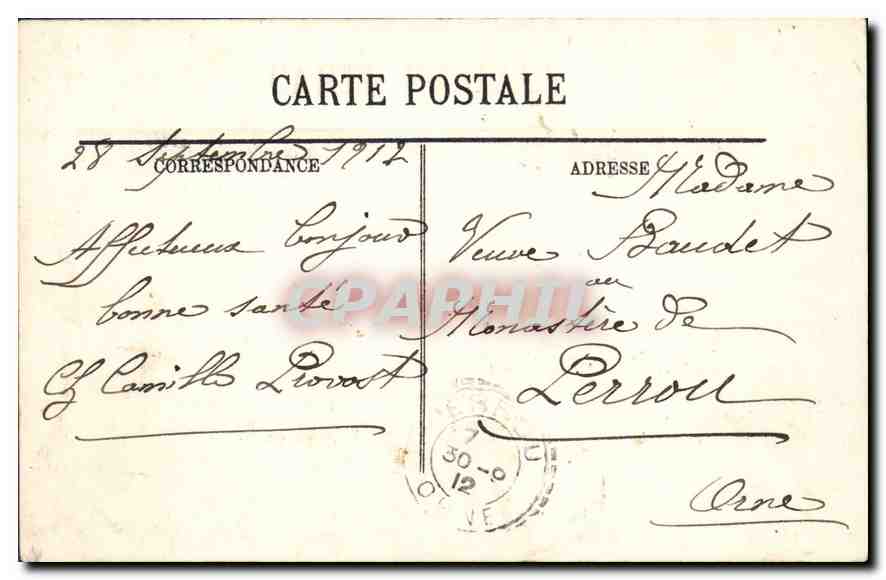 CARTE POSTALE
28 Septembre 1912
CORRESPONDANCE
Affectueux bonjour
bonne santé
Camille Provost
ADRESSE
Madame
Veuve Baudet
au
Monastère de
Perrou
Orne
CPAPHIL
7
30-9
12
ORNE